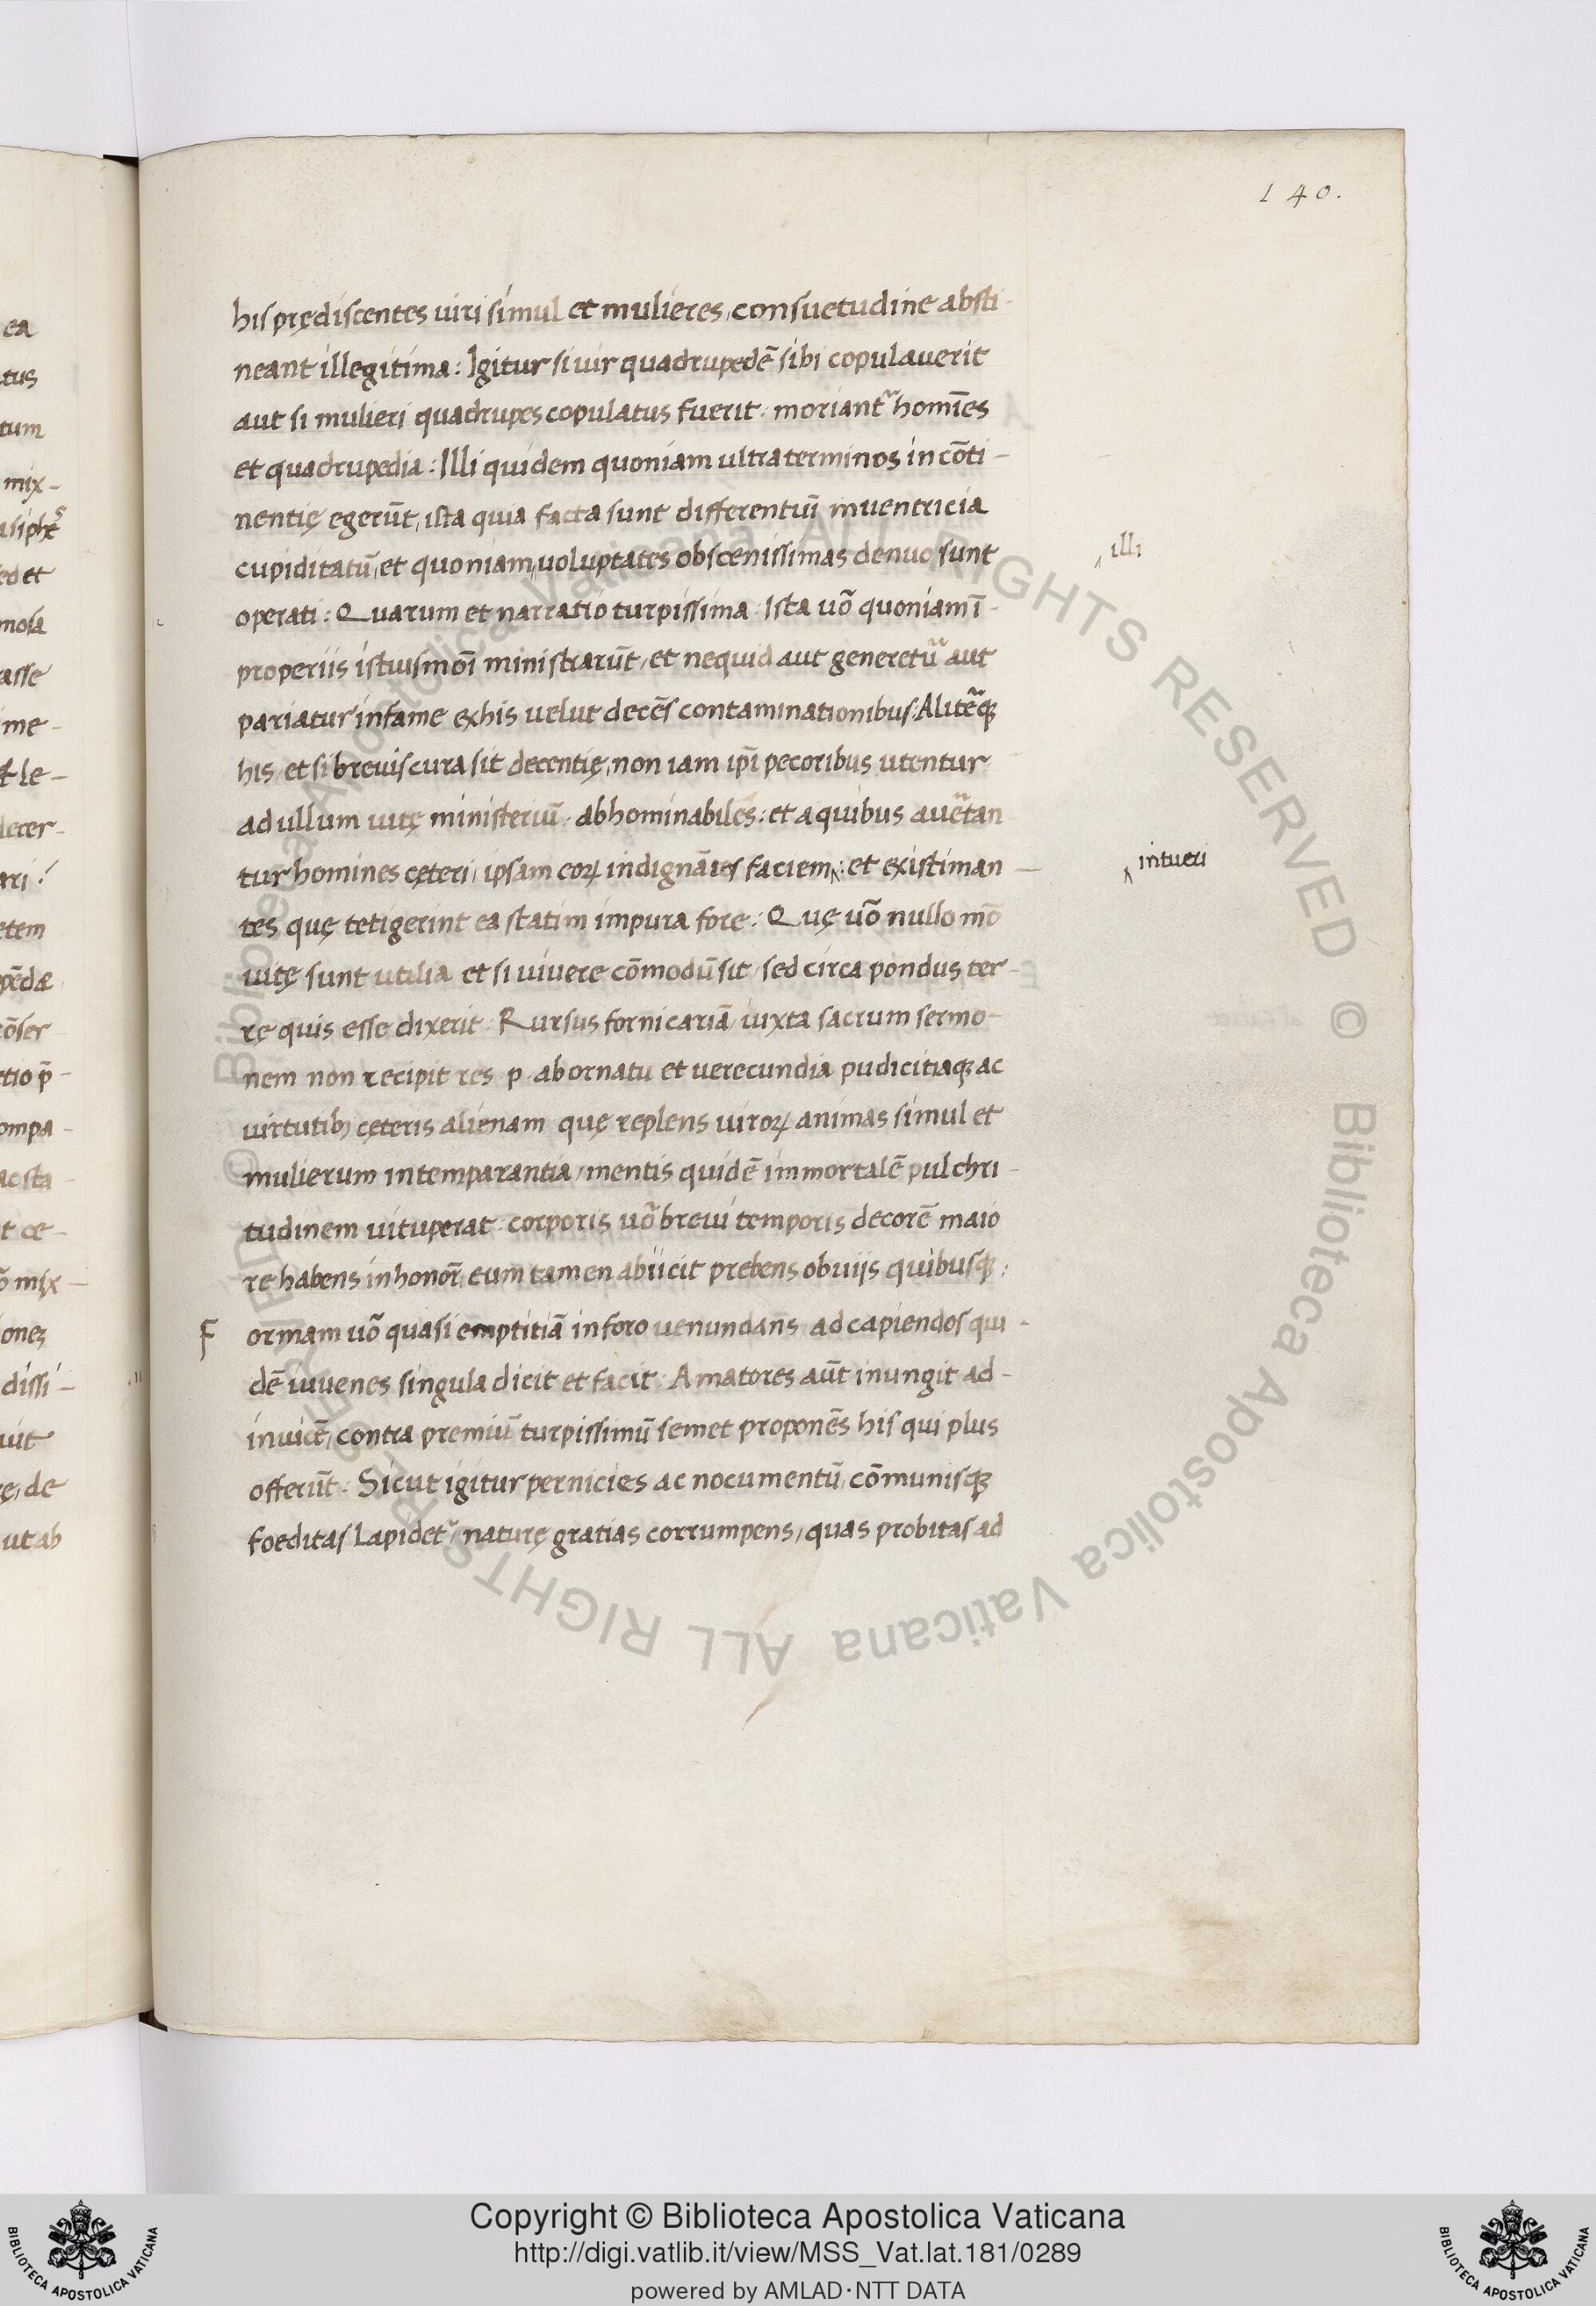 140.
his prędiscentes uiri simul et mulieres, consuetudine absti-
neant illegitima: Igitur si uir quadrupedē sibi copulauerit
aut si mulieri quadrupes copulatus fuerit: moriant᷑ homĩes
et quadrupedia: Illi quidem quoniam ultra terminos incõti-
nentię egerūt, ista quia facta sunt differentiū inuentricia
cupiditatū, et quoniam uoluptates obscenissimas denuo sunt
‸illi
operati: Quarum et narratio turpissima: Ista uõ quoniam ĩ-
properiis istiusmoĩ ministrarūt, et nequid aut generetu᷑ aut
pariatur infame ex his uelut decẽs contaminationibus: Alite᷑qȝ
his, et si breuis cura sit decentię, non iam ipĩ pecoribus utentur
ad ullum uitę ministeriū. abhominabiles: et a quibus aue᷑tan
tur homines cęteri, ipsam eoꝝ indignãtes faciem‸: et existiman-
‸intueri
tes quę tetigerint ea statim impura fore: Quę uõ nullo mõ
uitę sunt utilia et si uiuere cõmodū sit, sed circa pondus ter-
rę quis esse dixerit: Rursus fornicariã, iuxta sacrum sermo-
nem non recipit res p. ab ornatu et uerecundia pudicitiaqȝ ac
uirtutibȝ cęteris alienam quę replens uiroꝝ animas simul et
mulierum intemparantia, mentis quidē immortalē pulchri-
tudinem uituperat: corporis uõ breui temporis decorē maio
re habens in honor̃, eum tamen abiicit prebens obuijs quibusqȝ:
F ormam uõ quasi emptitiã in foro uenundans, ad capiendos qui-
dē iuuenes singula dicit et facit: Amatores aūt inungit ad-
inuicē, contra premiū turpissimū semet proponẽs his qui plus
offerūt: Sicut igitur pernicies ac nocumentū, cõmunisqȝ
foeditas lapidet᷑, naturę gratias corrumpens, quas probitas ad
ea
tus
tum
mix-
ed et
mosa
asse
me-
le-
decer-
ari?
etem
ompa-
ac sta-
t ce-
mix-
dissi-
uit
ę, de
ut ab
Copyright © Biblioteca Apostolica Vaticana
http://digi.vatlib.it/view/MSS_Vat.lat.181/0289
powered by AMLAD·NTT DATA
BIBLIOTECA APOSTOLICA VATICANA
BIBLIOTECA APOSTOLICA VATICANA
© Biblioteca Apostolica Vaticana ALL RIGHTS RESERVED © Biblioteca Apostolica Vaticana ALL RIGHTS RESERVED